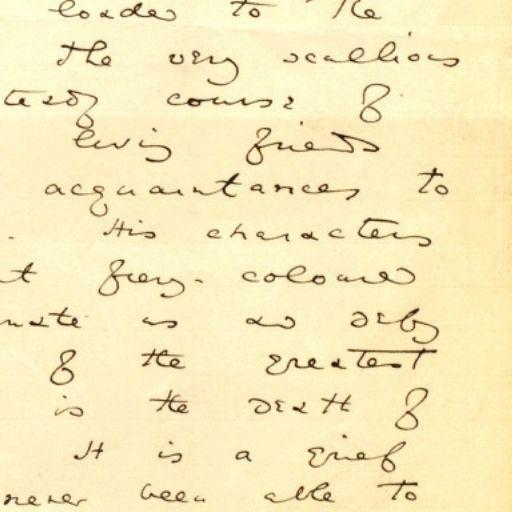 loaded to the
The very scullions
teady course of
living friends
acquaintances to
. His characters
t fiery-coloured
nate us and defy
of the greatest
is the death of
It is a grief
never been able to